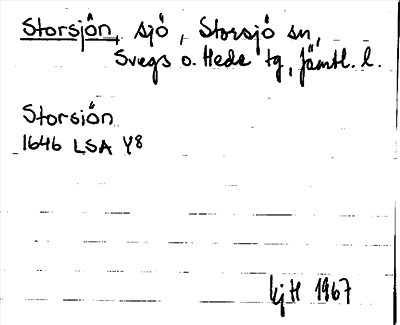 Storsjön, sjö, Storsjö sn,
Svegs o. Hede tg, Jämtl. l.
Storsjön
1646 LSA Y8
kjH 1967